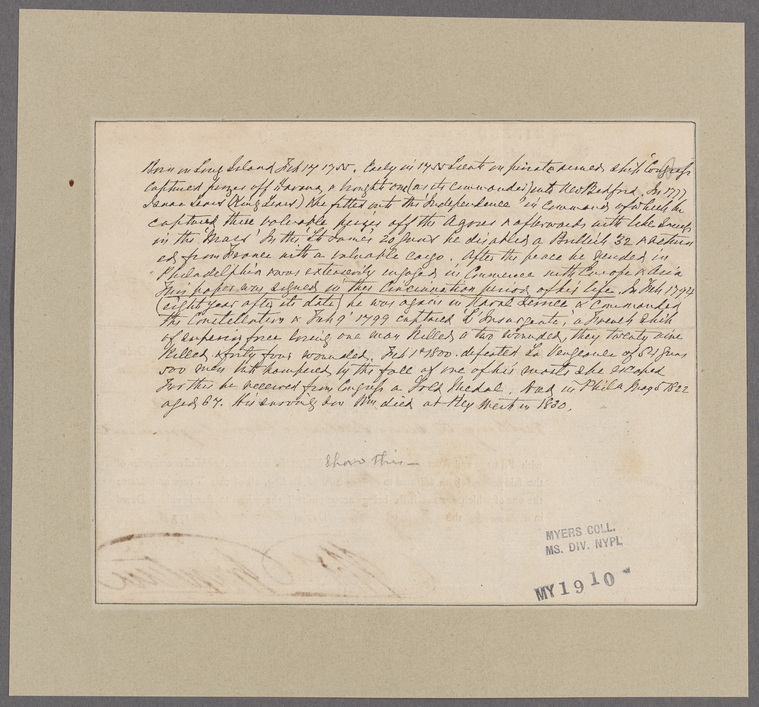 Born on Long Island Feb 17 1755. Early in 1755 Lieut on private armed ship Congress
captured prizes off Havana, & brought one (as its commander) into New Bedford. In 1777
Isaac Sears (King Sears) & he fitted out the 'Independence' in command of which he
captured three valuable prizes off the Azores & afterwards with like success
in the 'Mars' In the 'St James' 20 guns he disabled a British 32 & return
ed from France with a valuable cargo. After the peace he resided in
Philadelphia & was extensively engaged in Commerce with Europe & Asia
This paper was signed in this Cincinnatian period of his life. In 1794
(eight year after its date) he was again in Naval Service & commanded
the Constellation & Feby 9' 1799 captured 'L Insurgente,' a French ship
of superior force losing one man killed & two wounded, they twenty nine
killed & forty four wounded. Feb 1st 1800. defeated La Vengeance of 54 guns
500 men but hampered by the fall of one of his masts she escaped
For this he received from Congress a Gold Medal. died in Phila Aug 6 1822
aged 67. His surviving son Wm died at Key West in 1830.
I have this—
MYERS COLL.
MS. DIV. NYPL
MY 1910